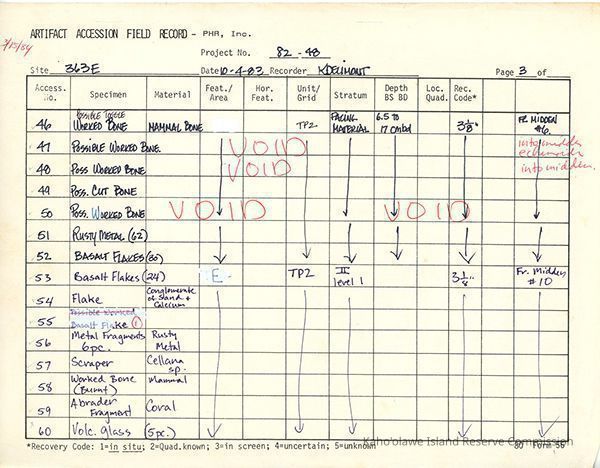 ARTIFACT ACCESSION FIELD RECORD - PHR, Inc.
3/15/84
Project No. 82-48
Site 363E Date 10-4-83 Recorder K DELIMONT Page 3 of
Access. No. Specimen Material Feat./ Area Hor. Feat. Unit/ Grid Stratum Depth BS BD Loc. Quad. Rec. Code*
46 POSSIBLE TOGGLE WORKED BONE MAMMAL BONE TP2 FACING MATERIAL 6.5 to 17 cmbd 3 1/8" FR MIDDEN #6
47 POSSIBLE WORKED BONE VOID into midden
48 POSS WORKED BONE VOID into midden
49 POSS. CUT BONE
50 POSS. WORKED BONE VOID VOID
51 RUSTY METAL (62)
52 BASALT FLAKES (80)
53 Basalt Flakes (24) E TP2 II level 1 3 1/8" Fr. Midden #10
54 Flake Conglomerate of Sand & Calcium
55 Possible Worked Basalt Flake (1)
56 Metal Fragments 6pc. Rusty Metal
57 Scraper Cellana sp.
58 Worked Bone (Burnt) Mammal
59 Abrader Fragment Coral
60 Volc. glass (5pc.)
*Recovery Code: 1=in situ; 2=Quad.known; 3=in screen; 4=uncertain; 5=unknown
Kaho'olawe Island Reserve Commission